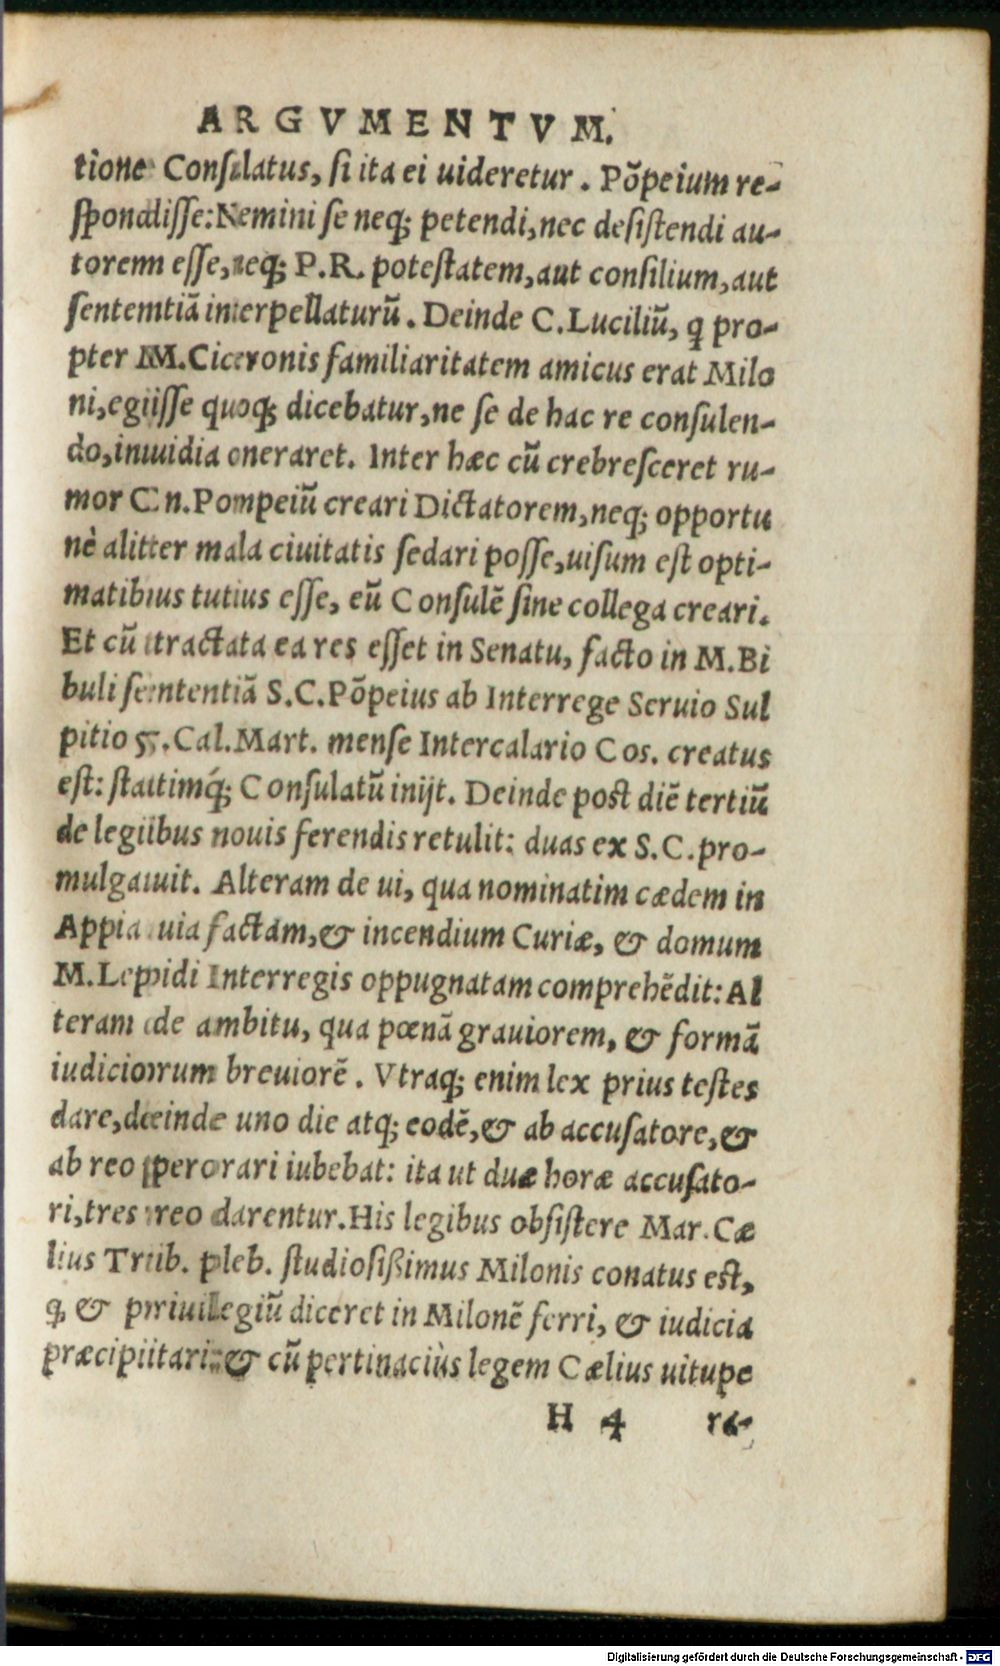 ARGVMENTVM.
tione Consulatus, si ita ei uideretur. Põpeium re-
spondisse: Nemini se neq; petendi, nec desistendi au-
torem esse, neq; P.R. potestatem, aut consilium, aut
sententiã interpellaturũ. Deinde C. Luciliũ, q̃ pro-
pter M. Ciceronis familiaritatem amicus erat Milo
ni, egisse quoq; dicebatur, ne se de hac re consulen-
do, inuidia oneraret. Inter hæc cũ crebresceret ru-
mor Cn. Pompeiũ creari Dictatorem, neq; opportu
nè aliter mala ciuitatis sedari posse, uisum est opti-
matibus tutius esse, eũ Consulẽ sine collega creari.
Et cũ tractata ea res esset in Senatu, facto in M. Bi
buli sententiã S.C. Põpeius ab Interrege Seruio Sul
pitio 5. Cal. Mart. mense Intercalario Cos. creatus
est: statimq́; Consulatũ inijt. Deinde post diẽ tertiũ
de legibus nouis ferendis retulit: duas ex S.C. pro-
mulgauit. Alteram de ui, qua nominatim cædem in
Appia uia factam, & incendium Curiæ, & domum
M. Lepidi Interregis oppugnatam comprehẽdit: Al
teram de ambitu, qua pœnã grauiorem, & formã
iudiciorum breuiorẽ. Vtraq; enim lex prius testes
dare, deinde uno die atq; eodẽ, & ab accusatore, &
ab reo perorari iubebat: ita ut duæ horæ accusato-
ri, tres reo darentur. His legibus obsistere Mar. Cæ
lius Trib. pleb. studiosißimus Milonis conatus est,
q̃ & priuilegiũ diceret in Milonẽ ferri, & iudicia
præcipitari: & cũ pertinaciùs legem Cælius uitupe
H 4 ra-
Digitalisierung gefördert durch die Deutsche Forschungsgemeinschaft - DFG